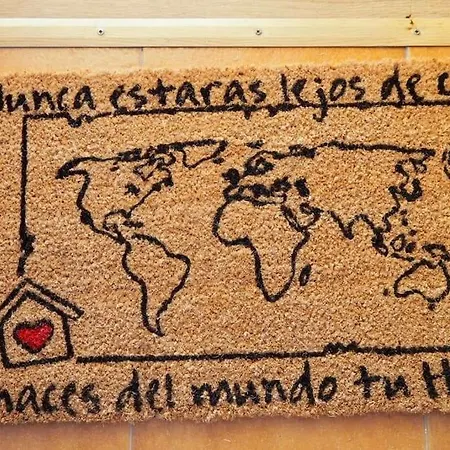 Nunca estaras lejos de c
haces del mundo tu H